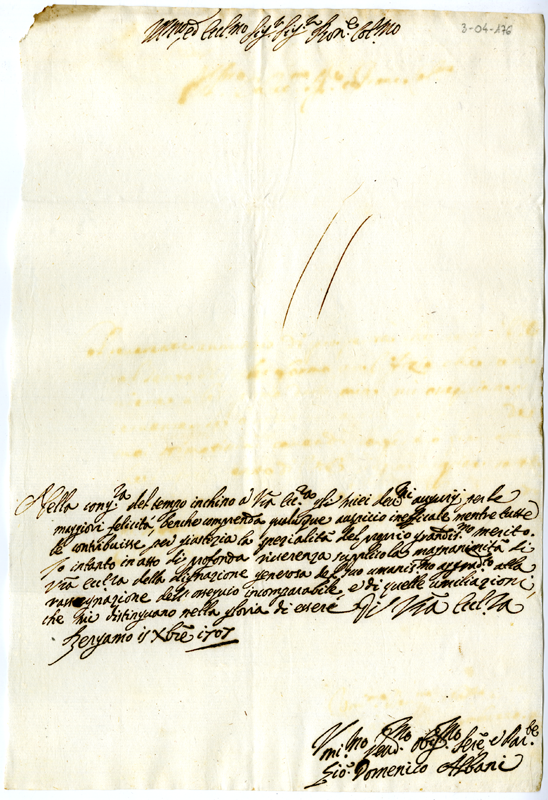 3-04-176
Ill.mo ed Ecc.mo Sig.r Sig.r Pron.e Col.mo
Nella cong.ra del tempo inchino à V.ra Ecc.za gli miei augurij per le
maggiori felicità, benche comprenda qualunque auspicio inefficace mentre tutte
le contribuisse per giustizia la spezialità del proprio grandiss.mo merito.
Io intanto in atto di profonda riverenza supplico la magnanimità di
V.ra Ecc.za della generosa del suo umaniss.mo aggrad.to alla
rassegnazione dell'ossequio incomparabile, e di quelle umiliazioni,
che mi distinguano nella gloria di essere Di V.ra Ecc.za
Bergamo 15 Xbre 1707
Um.mo
Gio. Domenico Albani